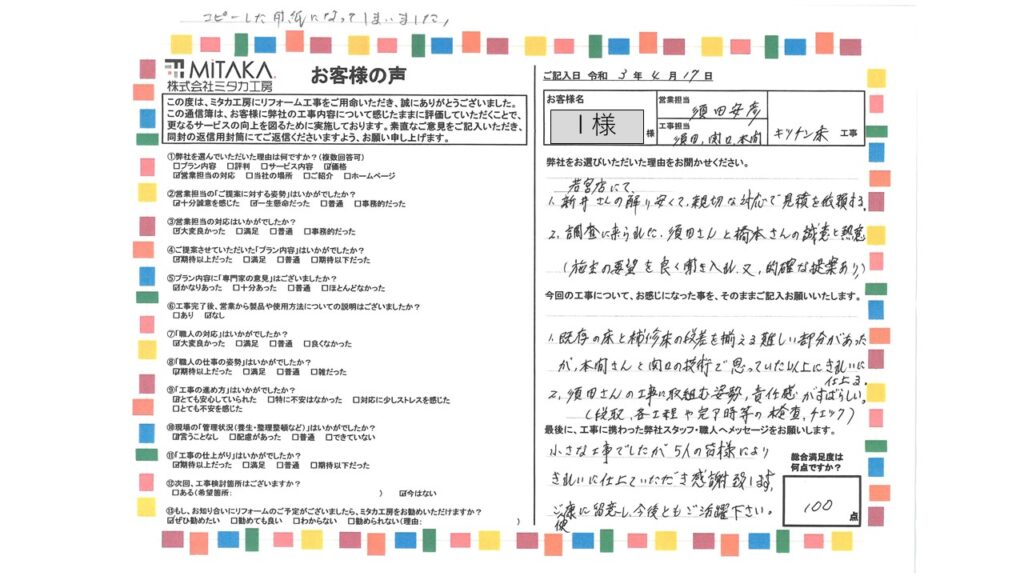 コピーした用紙になってしまいました。
MiTAKA
株式会社ミタカ工房
お客様の声
この度は、ミタカ工房にリフォーム工事をご用命いただき、誠にありがとうございました。
この通信簿は、お客様に弊社の工事内容について感じたままに評価していただくことで、
更なるサービスの向上を図るために実施しております。素直なご意見をご記入いただき、
同封の返信用封筒にてご返信くださいますよう、お願い申し上げます。
①弊社を選んでいただいた理由は何ですか?(複数回答可)
□プラン内容 □評判 □サービス内容 ☑価格
☑営業担当の対応 □当社の場所 □ご紹介 □ホームページ
②営業担当の「ご提案に対する姿勢」はいかがでしたか?
☑十分誠意を感じた ☑一生懸命だった □普通 □事務的だった
③営業担当の対応はいかがでしたか?
☑大変良かった □満足 □普通 □事務的だった
④ご提案させていただいた「プラン内容」はいかがでしたか?
☑期待以上だった □満足 □普通 □期待以下だった
⑤プラン内容に「専門家の意見」はございましたか?
☑かなりあった □十分あった □普通 □ほとんどなかった
⑥工事完了後、営業から製品や使用方法についての説明はございましたか?
□あり ☑なし
⑦「職人の対応」はいかがでしたか?
☑大変良かった □満足 □普通 □良くなかった
⑧「職人の仕事の姿勢」はいかがでしたか?
☑期待以上だった □満足 □普通 □雑だった
⑨「工事の進め方」はいかがでしたか?
☑とても安心していられた □特に不安はなかった □対応に少しストレスを感じた
□とても不安を感じた
⑩現場の「管理状況(養生・整理整頓など)」はいかがでしたか?
☑言うことなし □配慮があった □普通 □できていない
⑪「工事の仕上がり」はいかがでしたか?
☑期待以上だった □満足 □普通 □期待以下だった
⑫次回、工事検討箇所はございますか?
□ある(希望箇所: ) ☑今はない
⑬もし、お知り合いにリフォームのご予定がございましたら、ミタカ工房をお勧めいただけますか?
☑ぜひ勧めたい □勧めても良い □わからない □勧められない(理由: )
ご記入日 令和 3 年 4 月 17 日
お客様名
I 様
様
営業担当
須田安彦
工事担当
須田、関口、本間
キッチン床 工事
弊社をお選びいただいた理由をお聞かせください。
若宮店にて、
1. 新井さんの解り安くて、親切な対応で見積を依頼する。
2. 調査に来られた、須田さんと橋本さんの誠意と熱意
(施主の要望を良く聞き入れ、又、的確な提案あり)
今回の工事について、お感じになった事を、そのままご記入お願いいたします。
1. 既存の床と補修床の段差を揃える難しい部分があった
が、本間さんと関口の技術で思っていた以上にきれいに
仕上る。
2. 須田さんの工事に取組む姿勢、責任感がすばらしい。
(段取、各工程や完了時等の検査、チェック)
最後に、工事に携わった弊社スタッフ・職人へメッセージをお願いします。
小さな工事でしたが5人の皆様により
きれいに仕上ていただき感謝致します。
ご健康に留意し、今後ともご活躍下さい。
総合満足度は
何点ですか?
100
点